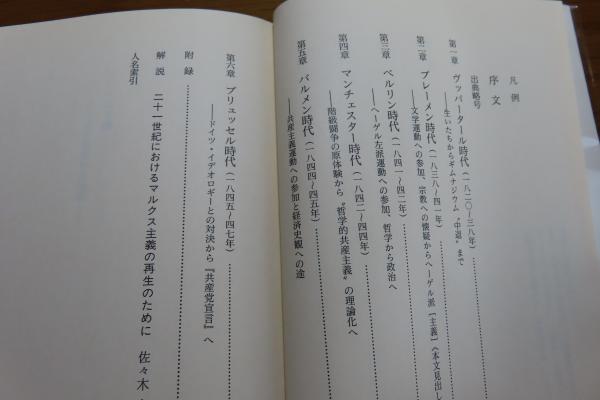 凡例
出典略号
序文
第一章 ヴッパータール時代(一八二〇~三八年)
――生いたちからギムナジウム〝中退〟まで
第二章 ブレーメン時代(一八三八~四一年)
――文学運動への参加、宗教への懐疑からヘーゲル派[主義]《本文見出し
第三章 ベルリン時代(一八四一~四二年)
――ヘーゲル左派運動への参加、哲学から政治へ
第四章 マンチェスター時代(一八四二~四四年)
――階級闘争の原体験から〝哲学的共産主義〟の理論化へ
第五章 バルメン時代(一八四四~四五年)
――共産主義運動への参加と経済史観への途
第六章 ブリュッセル時代(一八四五~四七年)
――ドイツ・イデオロギーとの対決から『共産党宣言』へ
附録
解説 二十一世紀におけるマルクス主義の再生のために 佐々木
人名索引